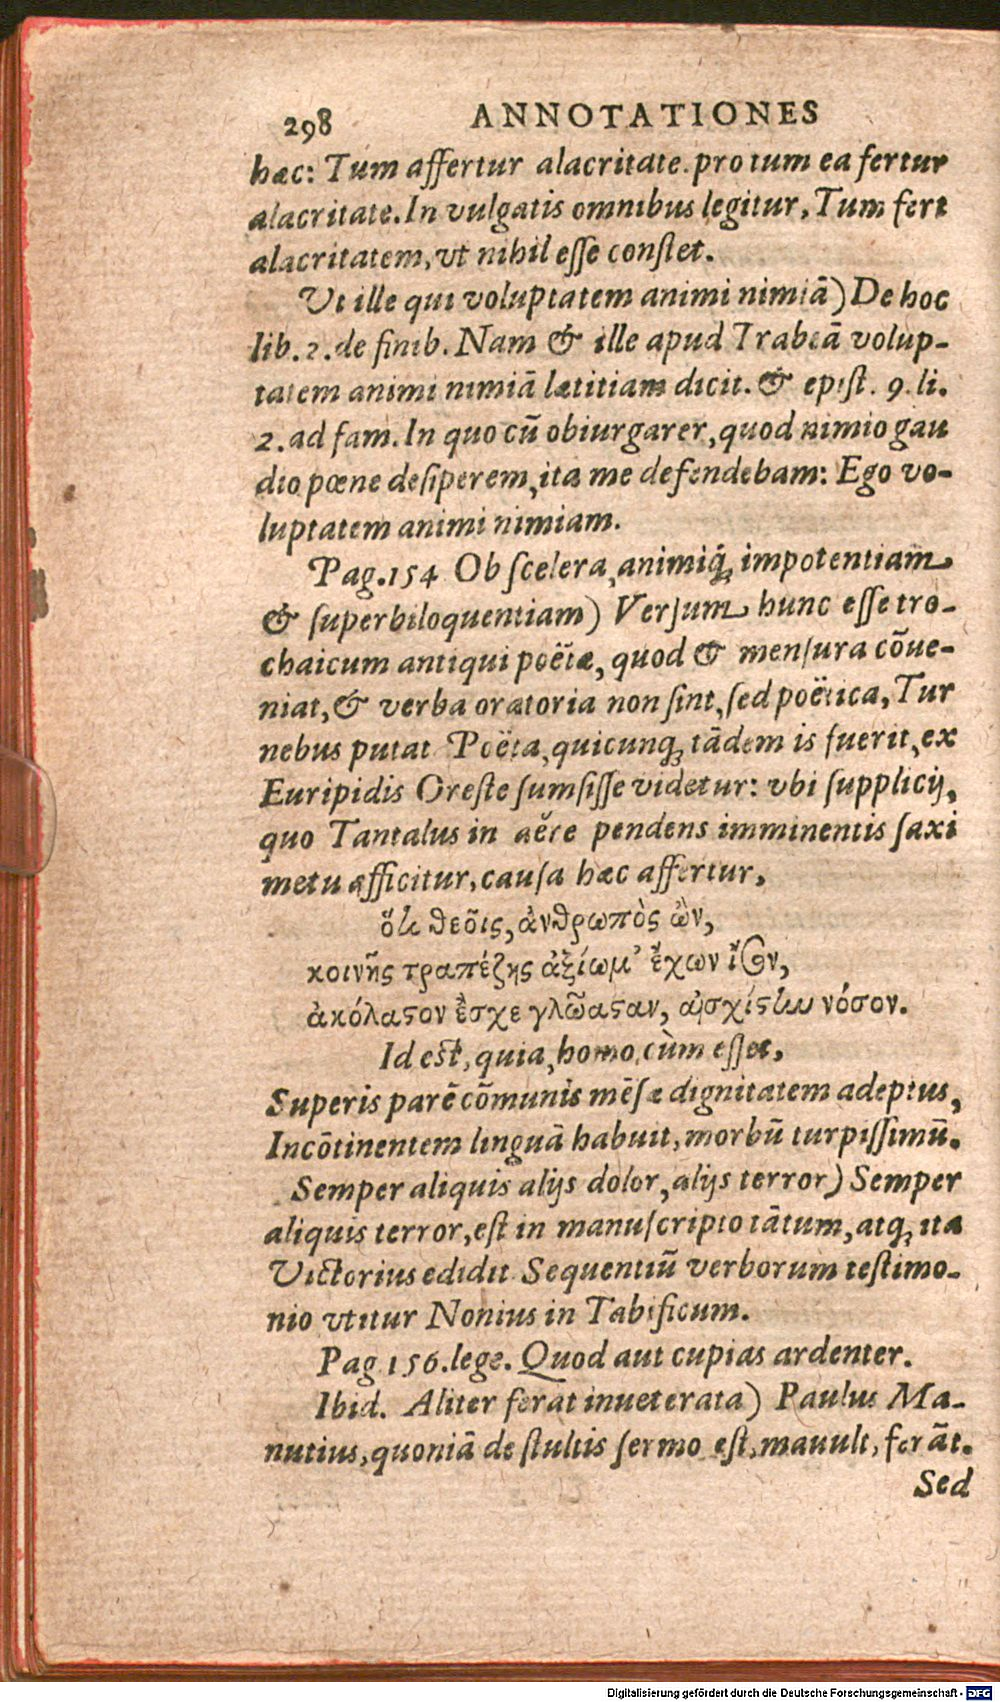 298 ANNOTATIONES
hæc: Tum affertur alacritate. pro tum ea fertur
alacritate. In vulgatis omnibus legitur, Tum fert
alacritatem, vt nihil esse constet.
Vt ille qui voluptatem animi nimiā) De hoc
lib. 2. de finib. Nam & ille apud Trabeā volup-
tatem animi nimiā lætitiam dicit. & epist. 9. li.
2. ad fam. In quo cū obiurgarer, quod nimio gau
dio pœne desiperem, ita me defendebam: Ego vo-
luptatem animi nimiam.
Pag. 154 Ob scelera, animiq́; impotentiam
& superbiloquentiam) Versum hunc esse tro-
chaicum antiqui poëtæ, quod & mensura cōue-
niat, & verba oratoria non sint, sed poëtica, Tur
nebus putat Poëta, quicunq; tādem is fuerit, ex
Euripidis Oreste sumsisse videtur: vbi supplicij,
quo Tantalus in aëre pendens imminentis saxi
metu afficitur, causa hæc affertur,
ὅτι θεοῖς, ἀνθρωπὸς ὢν,
κοινῆς τραπέζης ἀξίωμ' ἔχων ἴσον,
ἀκόλαστον ἔσχε γλῶσσαν, αἰσχίστην νόσον.
Id est, quia, homo cùm esset,
Superis parē cōmunis mēsæ dignitatem adeptus,
Incōtinentem linguā habuit, morbū turpissimū.
Semper aliquis alijs dolor, alijs terror) Semper
aliquis terror, est in manuscripto tātum, atq; ita
Victorius edidit. Sequentiū verborum testimo-
nio vtitur Nonius in Tabificum.
Pag 156. lege. Quod aut cupias ardenter.
Ibid. Aliter ferat inueterata) Paulus Ma-
nutius, quoniā de stultis sermo est, mauult, ferāt.
Sed
Digitalisierung gefördert durch die Deutsche Forschungsgemeinschaft - DFG